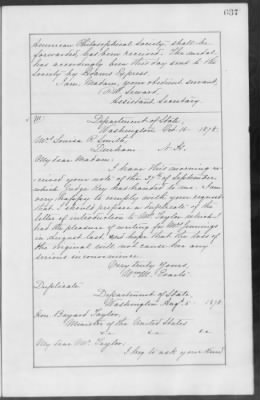 637
American Philosophical Society, shall be
forwarded, has been received. The medal
has accordingly been this day sent to the
Society by Adams Express.
I am, Madam, your obedient servant,
F. W. Seward,
Assistant Secretary.
Department of State,
Washington Oct 10 1878.
Mrs Louisa R. Smith,
Durham N. H.
My dear Madam:
I have this morning re-
ceived your note of the 27th of September
which Judge Key has handed to me. I am
very happy to comply with your request
that I should prepare a duplicate of the
letter of introduction to Mr Taylor which I
had the pleasure of writing for Mrs Jennings
in August last, and hope that the loss of
the original will not cause her any
serious inconvenience.
Very truly Yours,
Wm M. Evarts
Duplicate
Department of State,
Washington Aug. 5 1878
Hon. Bayard Taylor,
Minister of the United States
&c &c &c
My dear Mr. Taylor,
I beg to ask your kind